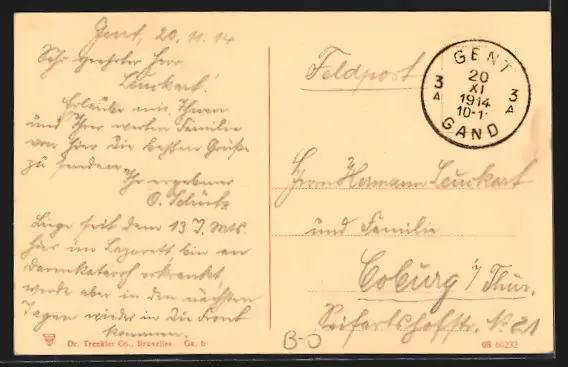 Gent, 20.11.14
Sehr geehrter Herr
Leuckart!
Erlaube mir Ihnen
und Ihrer werten Familie
von hier die besten Grüße
zu senden
Ihr ergebener
O. Schütz
Liege seit dem 13 d. Mts.
hier im Lazarett bin an
Darmkatarrh erkrankt,
werde aber in den nächsten
Tagen wieder in die Front
kommen.
Dr. Trenkler Co., Bruxelles Ga. 6
Feldpost
GENT
20
XI
1914
10-1
GAND
3
A
3
A
Herrn Hermann Leuckart
und Familie
Coburg i/Thür.
Seifartshofstr. No 21
B-O
08 60232